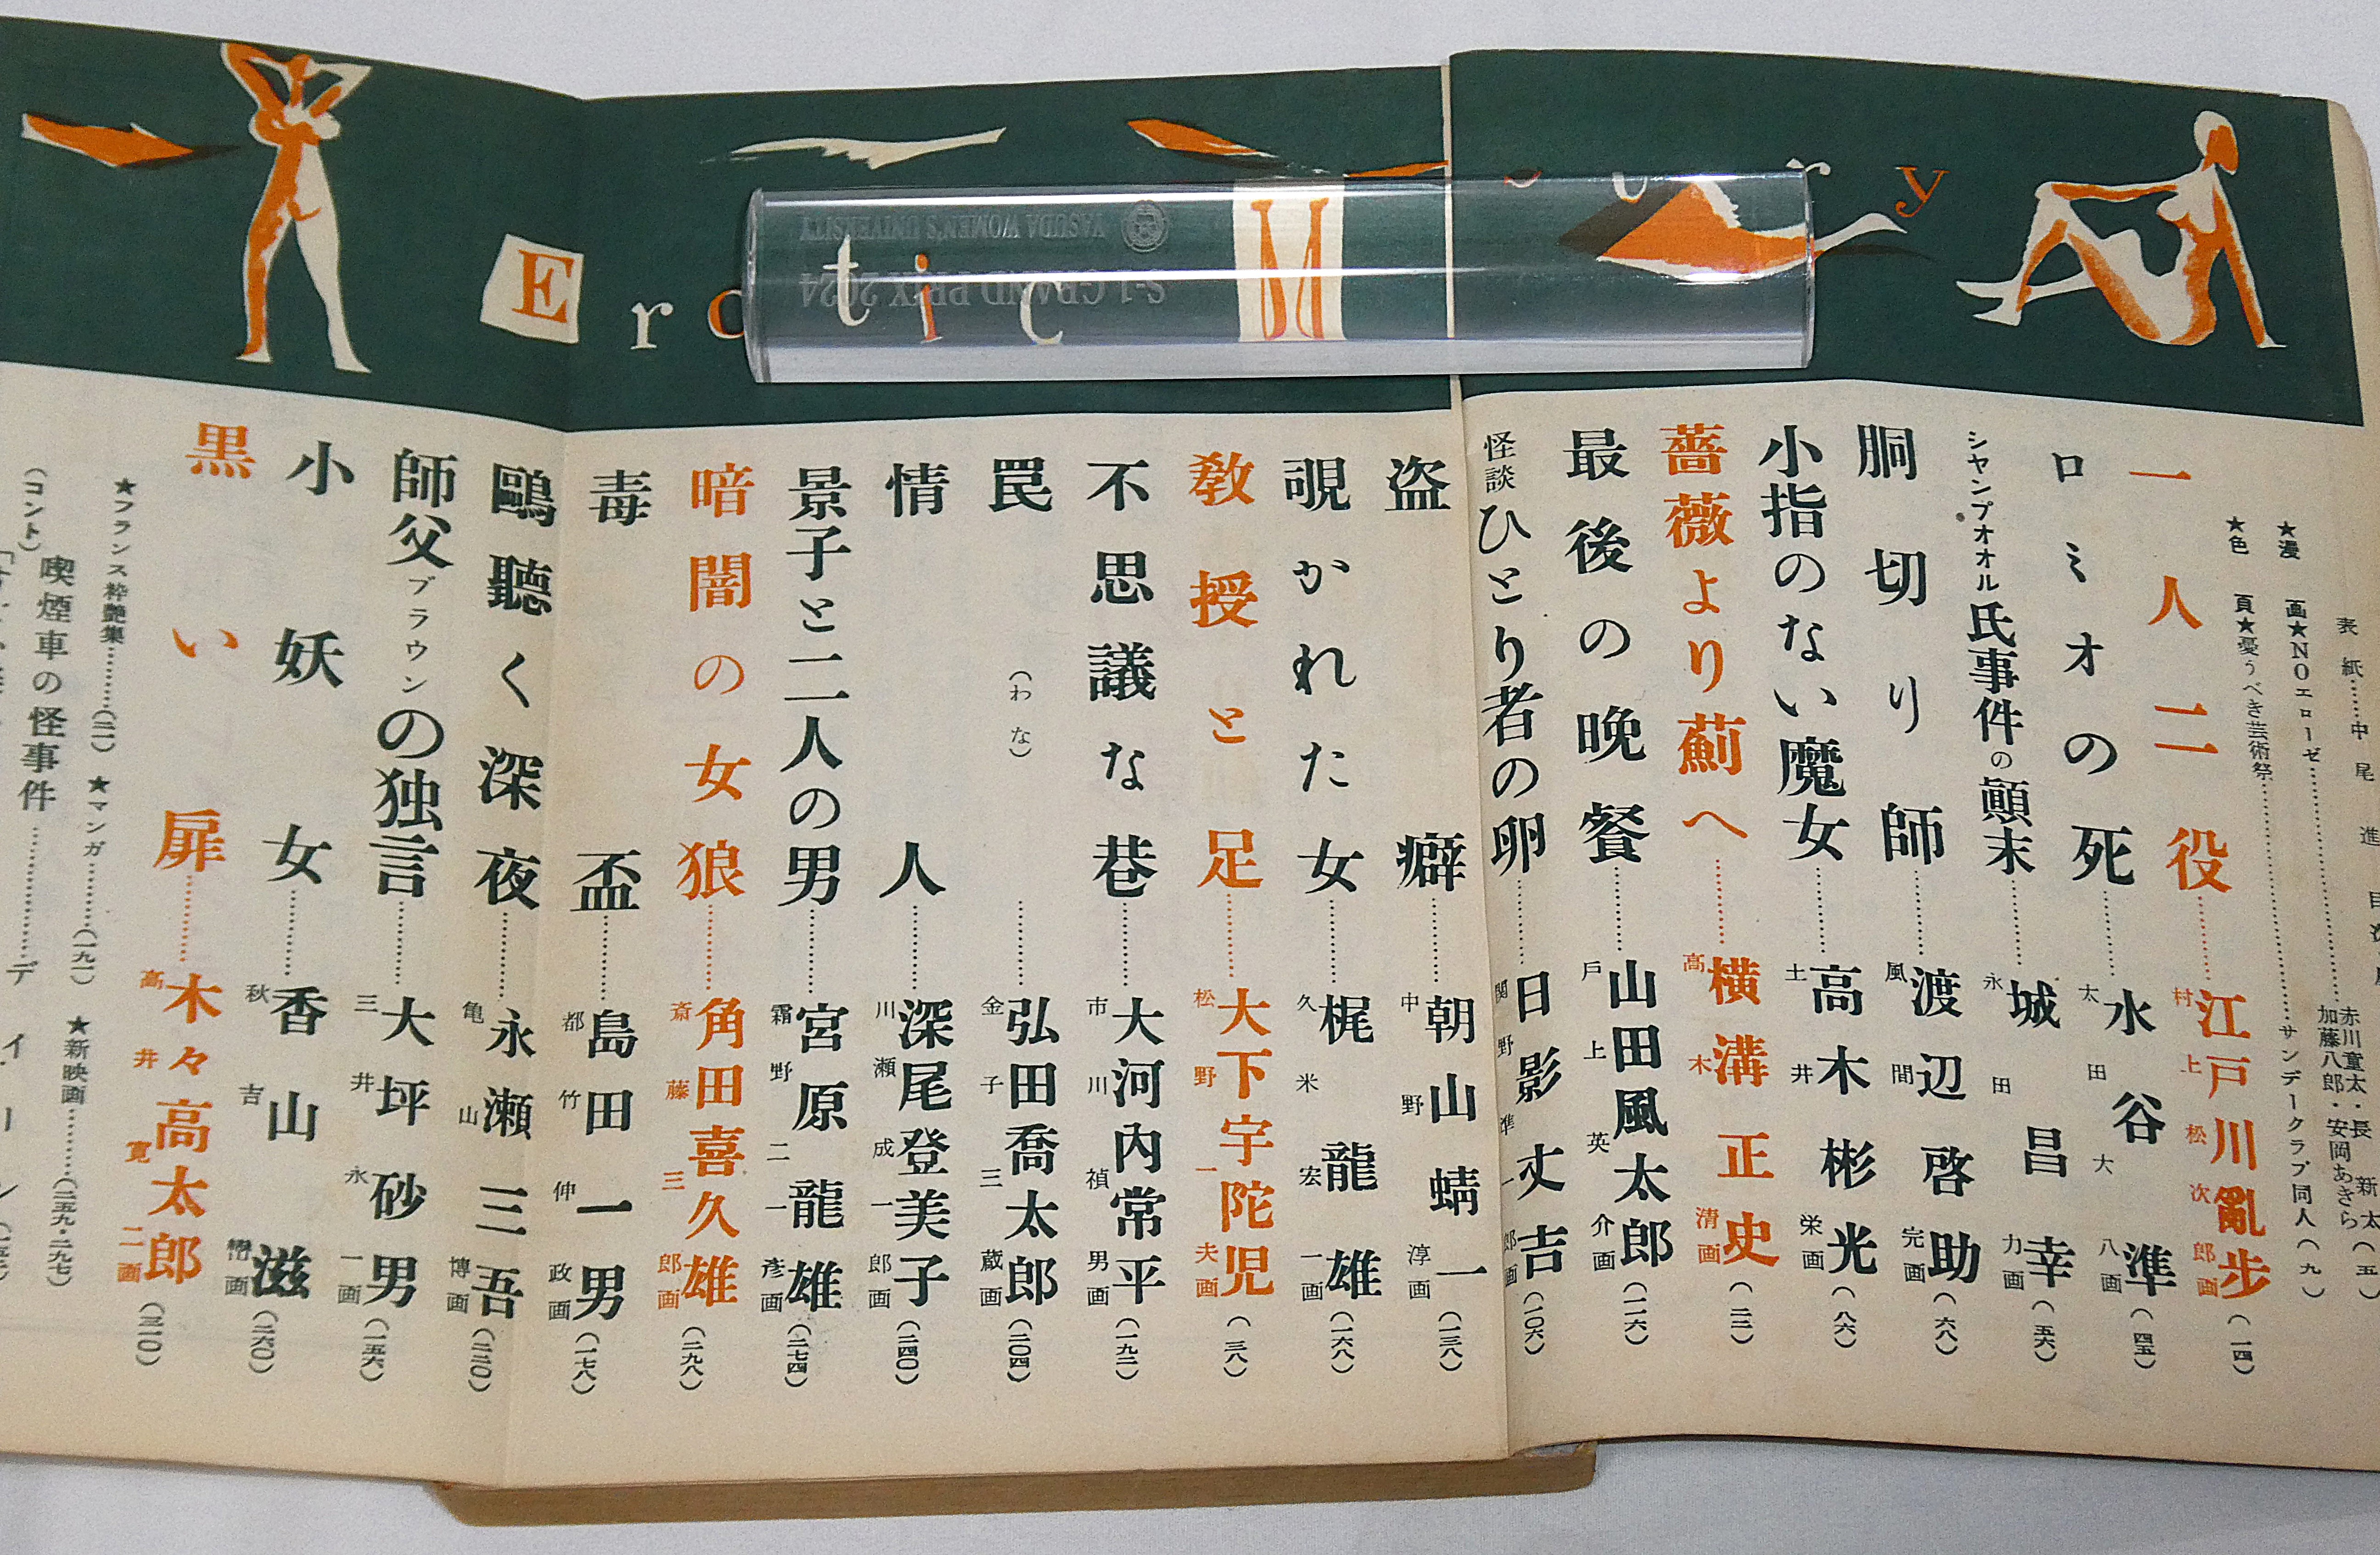 Erotic M
y
YASUDA WOMEN'S UNIVERSITY
S-1 GRAND PRIX 2024
表紙……中尾進
★漫画★NOエローゼ……
赤川童太・長新太
加藤八郎・安岡あきら
(九)
★色頁★憂うべき芸術祭……サンデークラブ同人
一人二役……江戸川亂歩 村上松次郎画(一四)
ロミオの死……水谷準 太田大八画(四五)
シャンプオオル氏事件の顚末……城昌幸 永田力画(五六)
胴切り師……渡辺啓助 風間完画(六八)
小指のない魔女……高木彬光 土井栄画(八六)
薔薇より薊へ……横溝正史 高木清画(二二)
最後の晩餐……山田風太郎 戸上英介画(一一六)
怪談ひとり者の卵……日影丈吉 関野準一郎画(一〇六)
盗癖……朝山蜻一 中野淳画(一三八)
覗かれた女……梶龍雄 久米宏一画(一六八)
教授と足……大下宇陀児 松野一夫画(三八)
不思議な巷……大河内常平 市川禎男画(一九二)
罠(わな)……弘田喬太郎 金子三蔵画(二〇四)
情人……深尾登美子 川瀬成一郎画(二四〇)
景子と二人の男……宮原龍雄 霜野二一彦画(二七四)
暗闇の女狼……角田喜久雄 斎藤三郎画(二九八)
毒盃……島田一男 都竹伸政画(一七八)
鷗聴く深夜……永瀬三吾 亀山博画(二二〇)
師父ブラウンの独言……大坪砂男 三井永一画(一五六)
小妖女……香山滋 秋吉巒画(二六〇)
黒い扉……木々高太郎 高井寛二画(三一〇)
★フランス粋艶集……(三一) ★マンガ……(一九一) ★新映画……(二五九・二九七)
(コント)
喫煙車の怪事件……ディーン